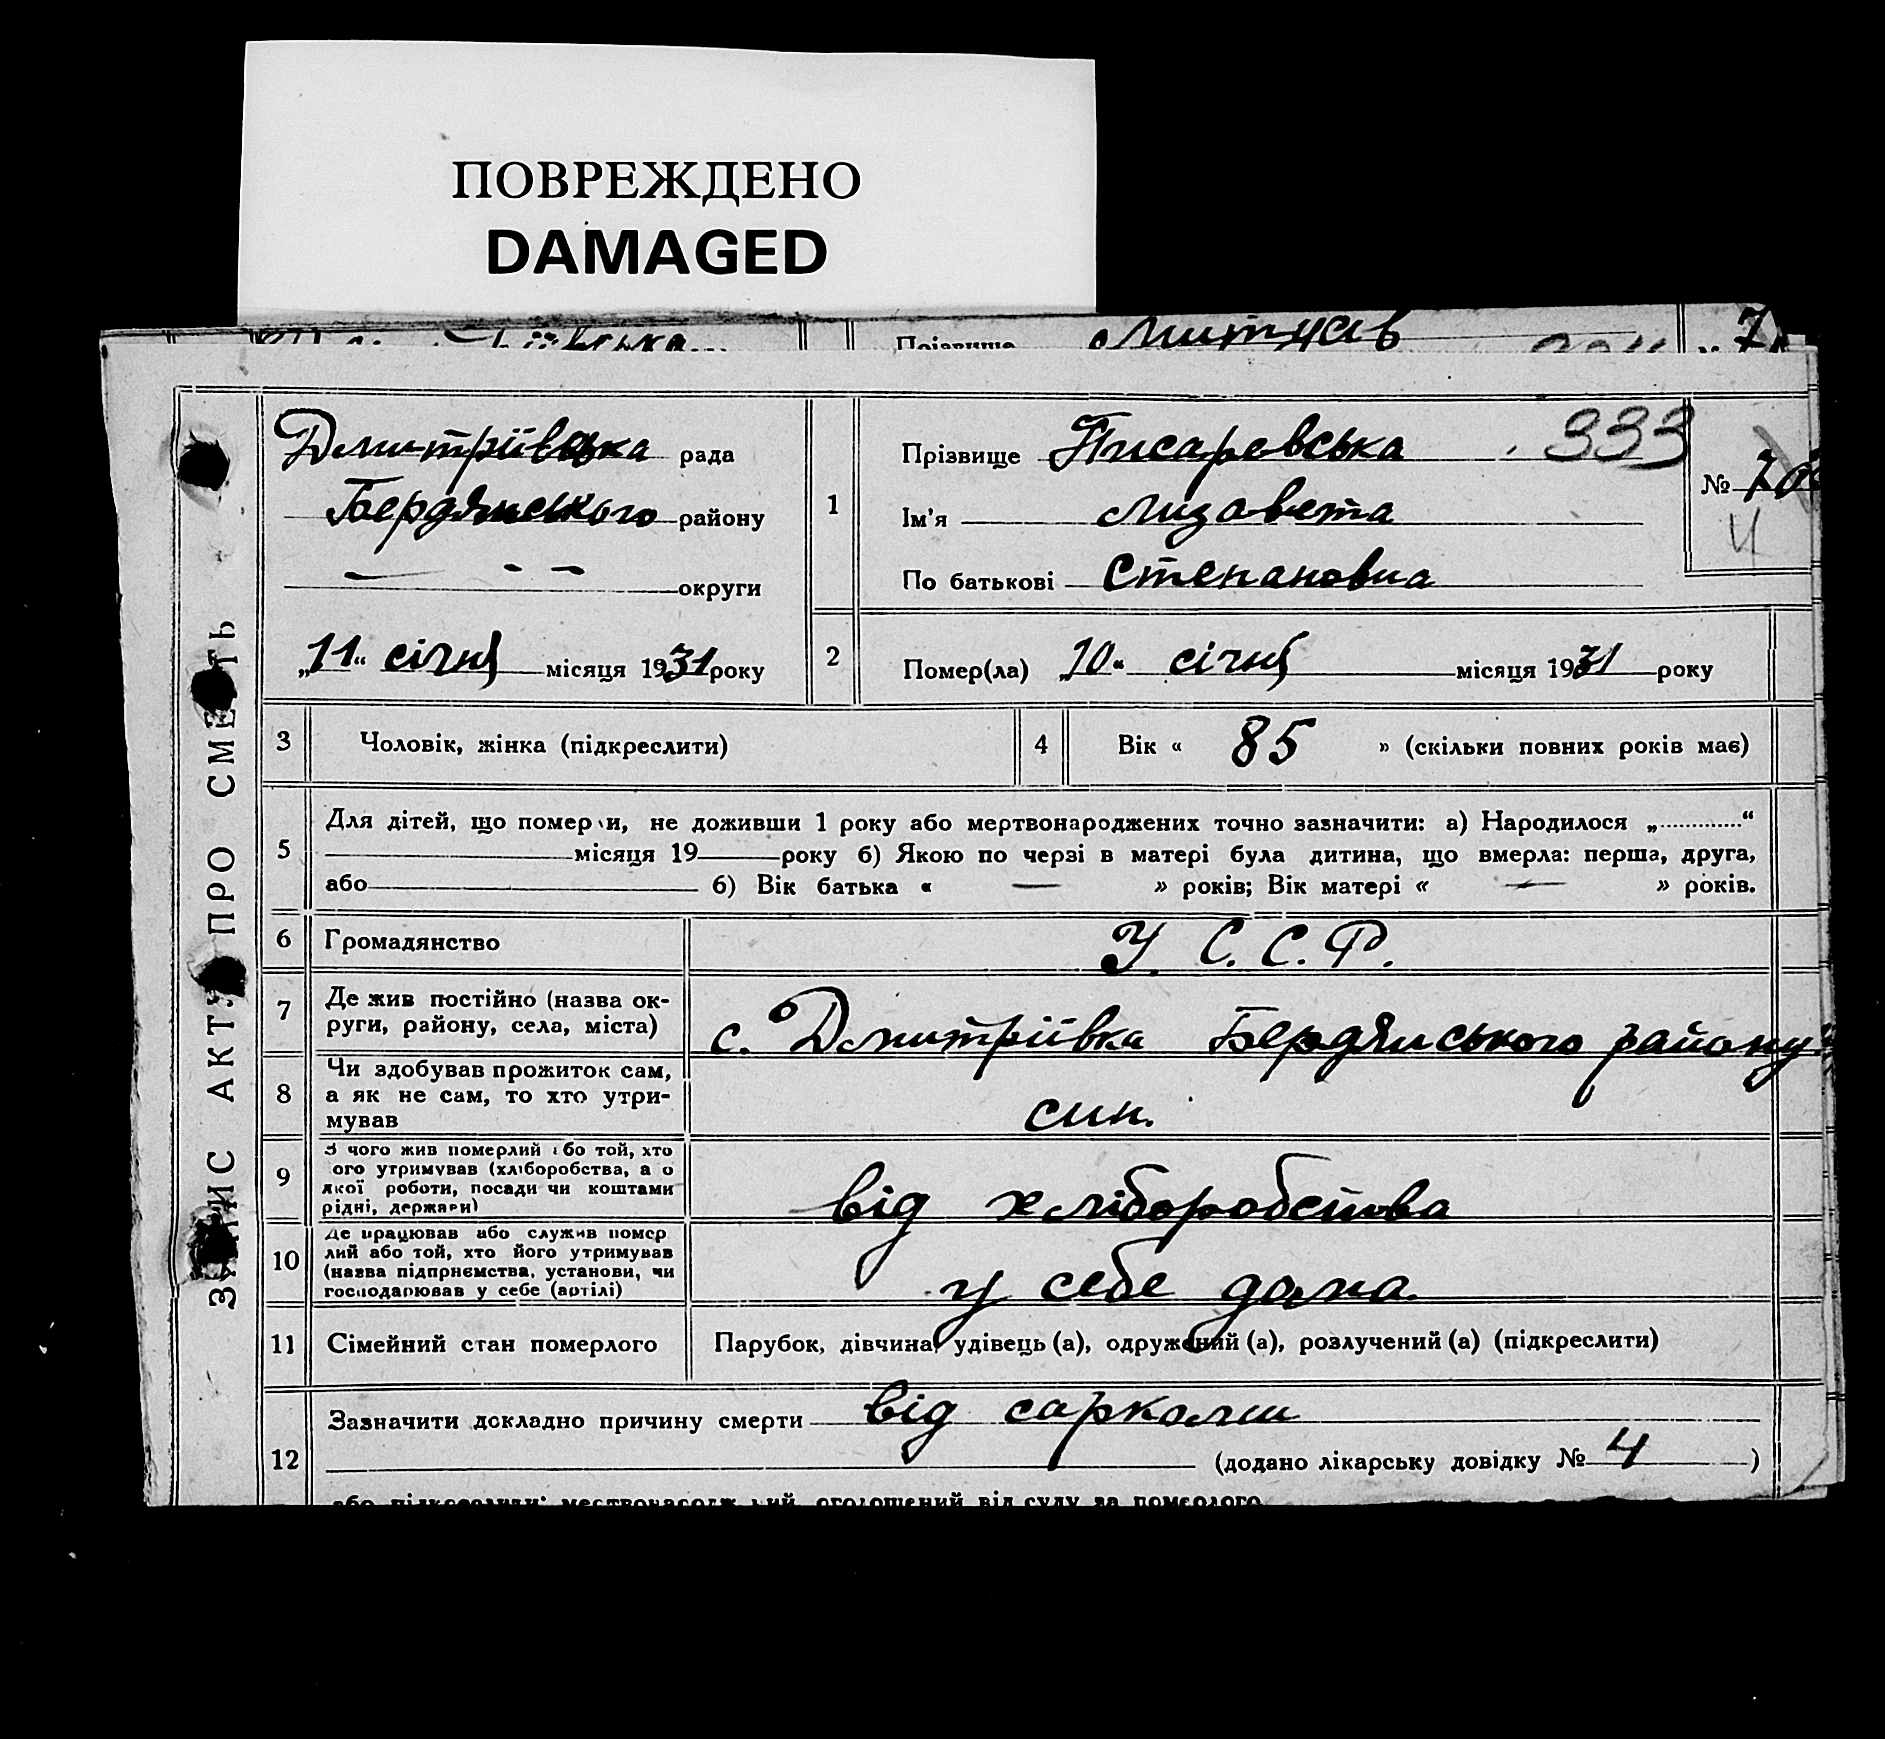 ПОВРЕЖДЕНО
DAMAGED
Прізвище
7
ЗАПИС АКТУ ПРО СМЕРТЬ
Дмитріївська рада
Бердянського району
округи
„11“ січня місяця 1931 року
1
Прізвище Писаревська 333
Ім'я Лизавета
По батькові Степановна
№ 70
4
2
Помер(ла) „10“ січня місяця 1931 року
3 Чоловік, жінка (підкреслити)
4 Вік « 85 » (скільки повних років має)
5
Для дітей, що померли, не доживши 1 року або мертвонароджених точно зазначити: а) Народилося „ “
місяця 19 року б) Якою по черзі в матері була дитина, що вмерла: перша, друга,
або б) Вік батька « — » років; Вік матері « — » років.
6 Громадянство У. С. С. Р.
7
Де жив постійно (назва ок-
руги, району, села, міста)
с. Дмитріївка Бердянського району
8
Чи здобував прожиток сам,
а як не сам, то хто утри-
мував
син.
9
З чого жив померлий або той, хто
ого утримував (хліборобства, а о
якої роботи, посади чи коштами
рідні, держави)
від хліборобства
10
Де працював або служив помер
лий або той, хто його утримував
(назва підприємства, установи, чи
господарював у себе (артілі)
у себе дома.
11 Сімейний стан померлого
Парубок, дівчина, удівець (а), одружений (а), розлучений (а) (підкреслити)
12
Зазначити докладно причину смерти від
(додано лікарську довідку № 4 )
або підкреслити: мертвонародж ний, оголошений від суду за померлого